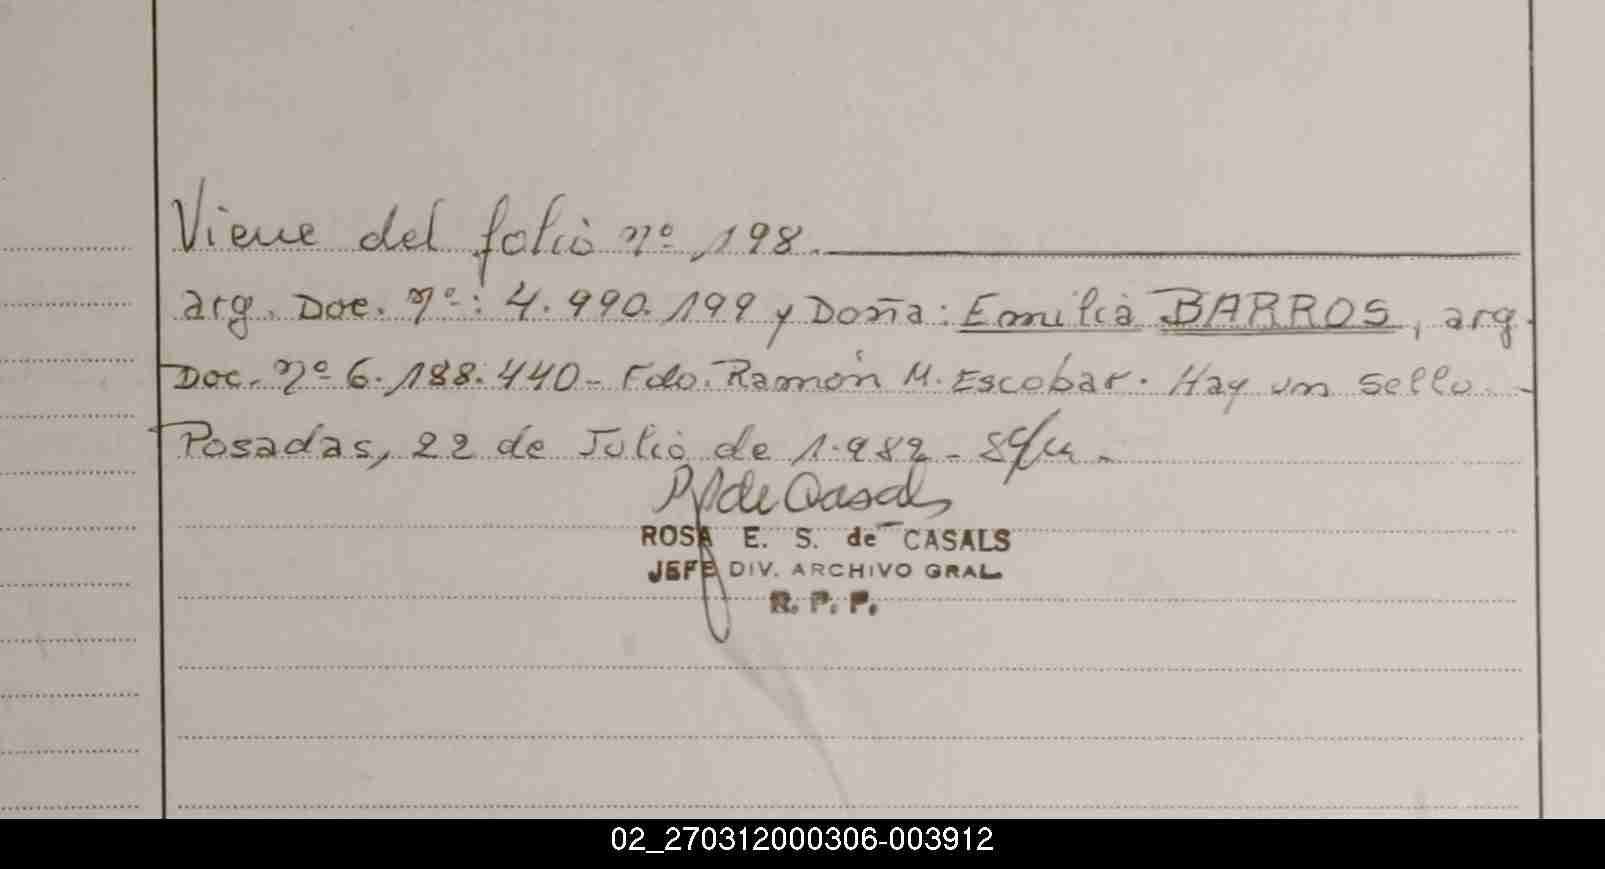 Viene del folio nº 198.
arg. Doc. nº: 4.990.199 y Doña: Emilia BARROS, arg.
Doc. nº 6.188.440 - Fdo. Ramón M. Escobar. Hay un sello. -
Posadas, 22 de Julio de 1.982 -
de Casals
ROSA E. S. de CASALS
JEFE DIV. ARCHIVO GRAL
R. P. P.
02_270312000306-003912